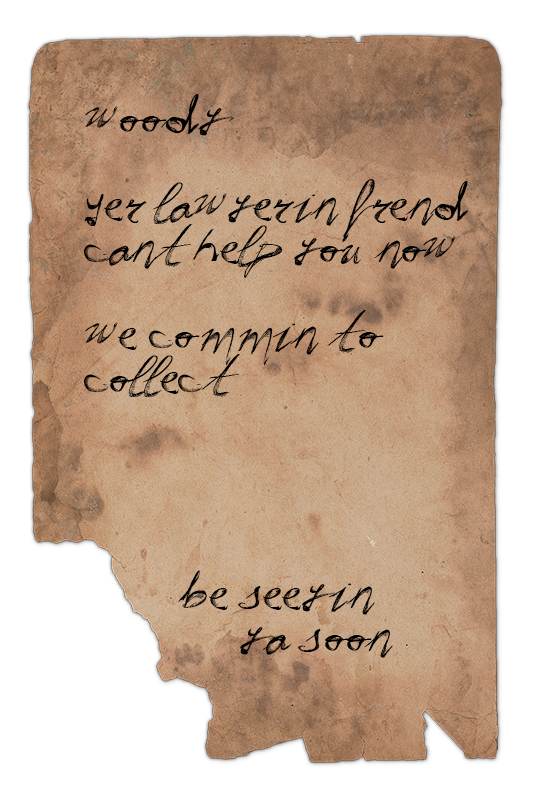 woody
yer lawyerin frend
cant help you now
we commin to
collect
be seeyin
ya soon